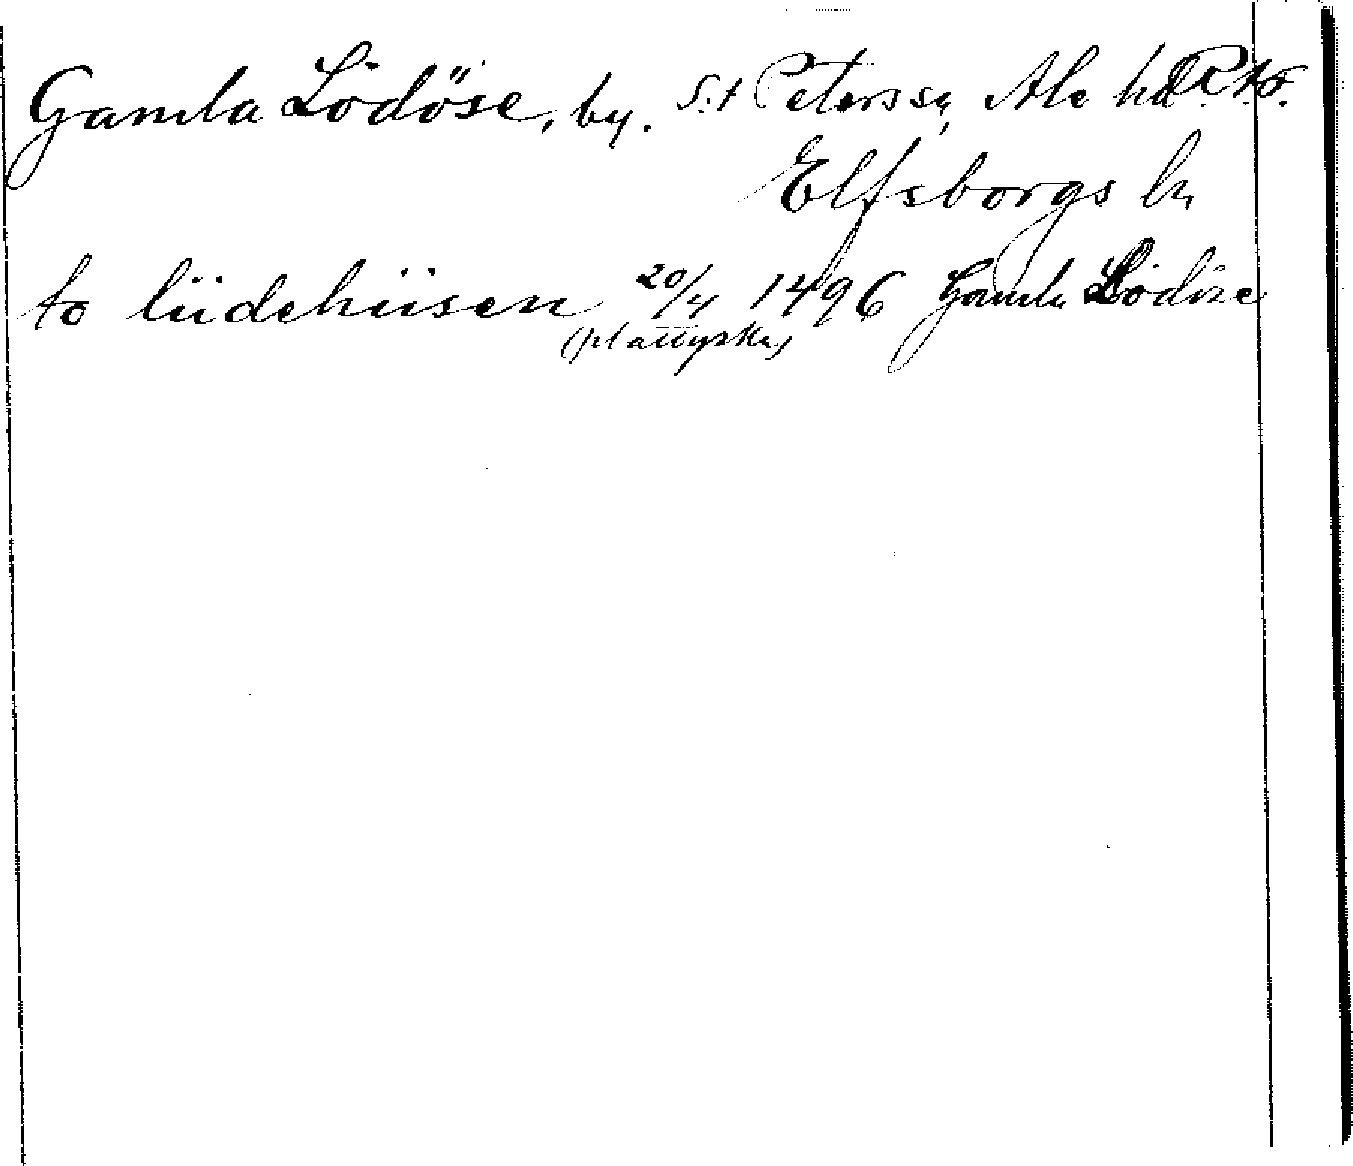 Gamla Lödöse, by. S:t Peters sn, Ale hd
Elfsborgs ln
to lüdehüsen 20/4 1496 Gamla Lödöse
(plattyska)